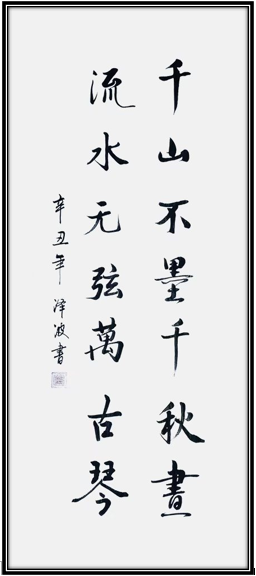 千山不墨千秋畫
流水无弦萬古琴
辛丑年 泽波書